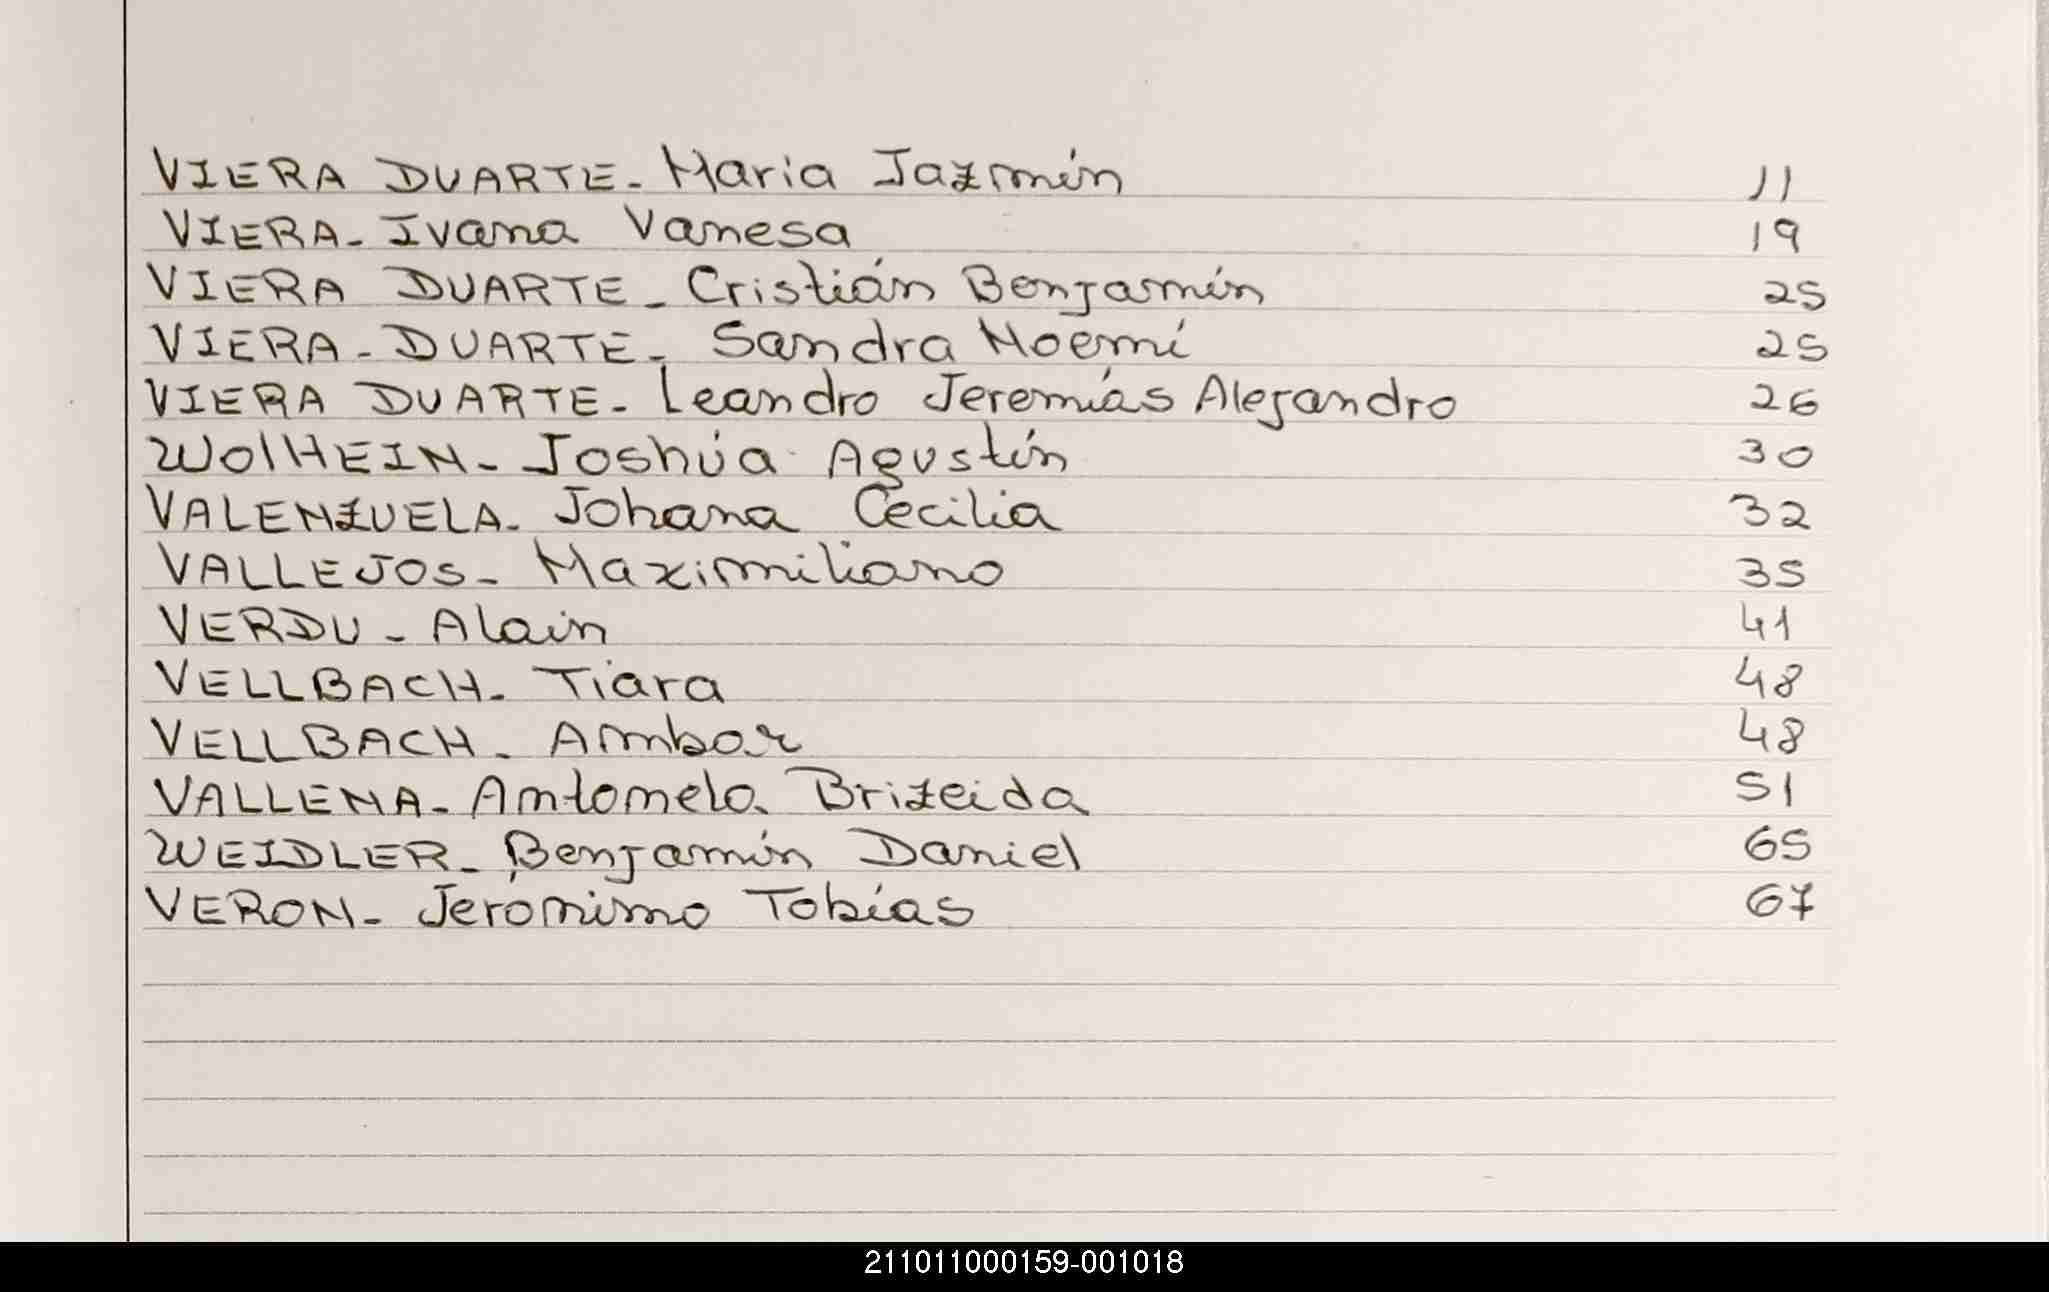 VIERA DUARTE - Maria Jazmín 11
VIERA - Ivana Vanesa 19
VIERA DUARTE - Cristián Benjamín 25
VIERA - DUARTE - Sandra Noemí 25
VIERA DUARTE - Leandro Jeremías Alejandro 26
WOlHEIN - Joshúa Agustín 30
VALENZUELA - Johana Cecilia 32
VALLEJOS - Maximiliano 35
VERDU - Alain 41
VELLBACH - Tiara 48
VELLBACH - Ambar 48
VALLENA - Antonela Brizeida 51
WEIDLER - Benjamín Daniel 65
VERON - Jerónimo Tobías 67
211011000159-001018